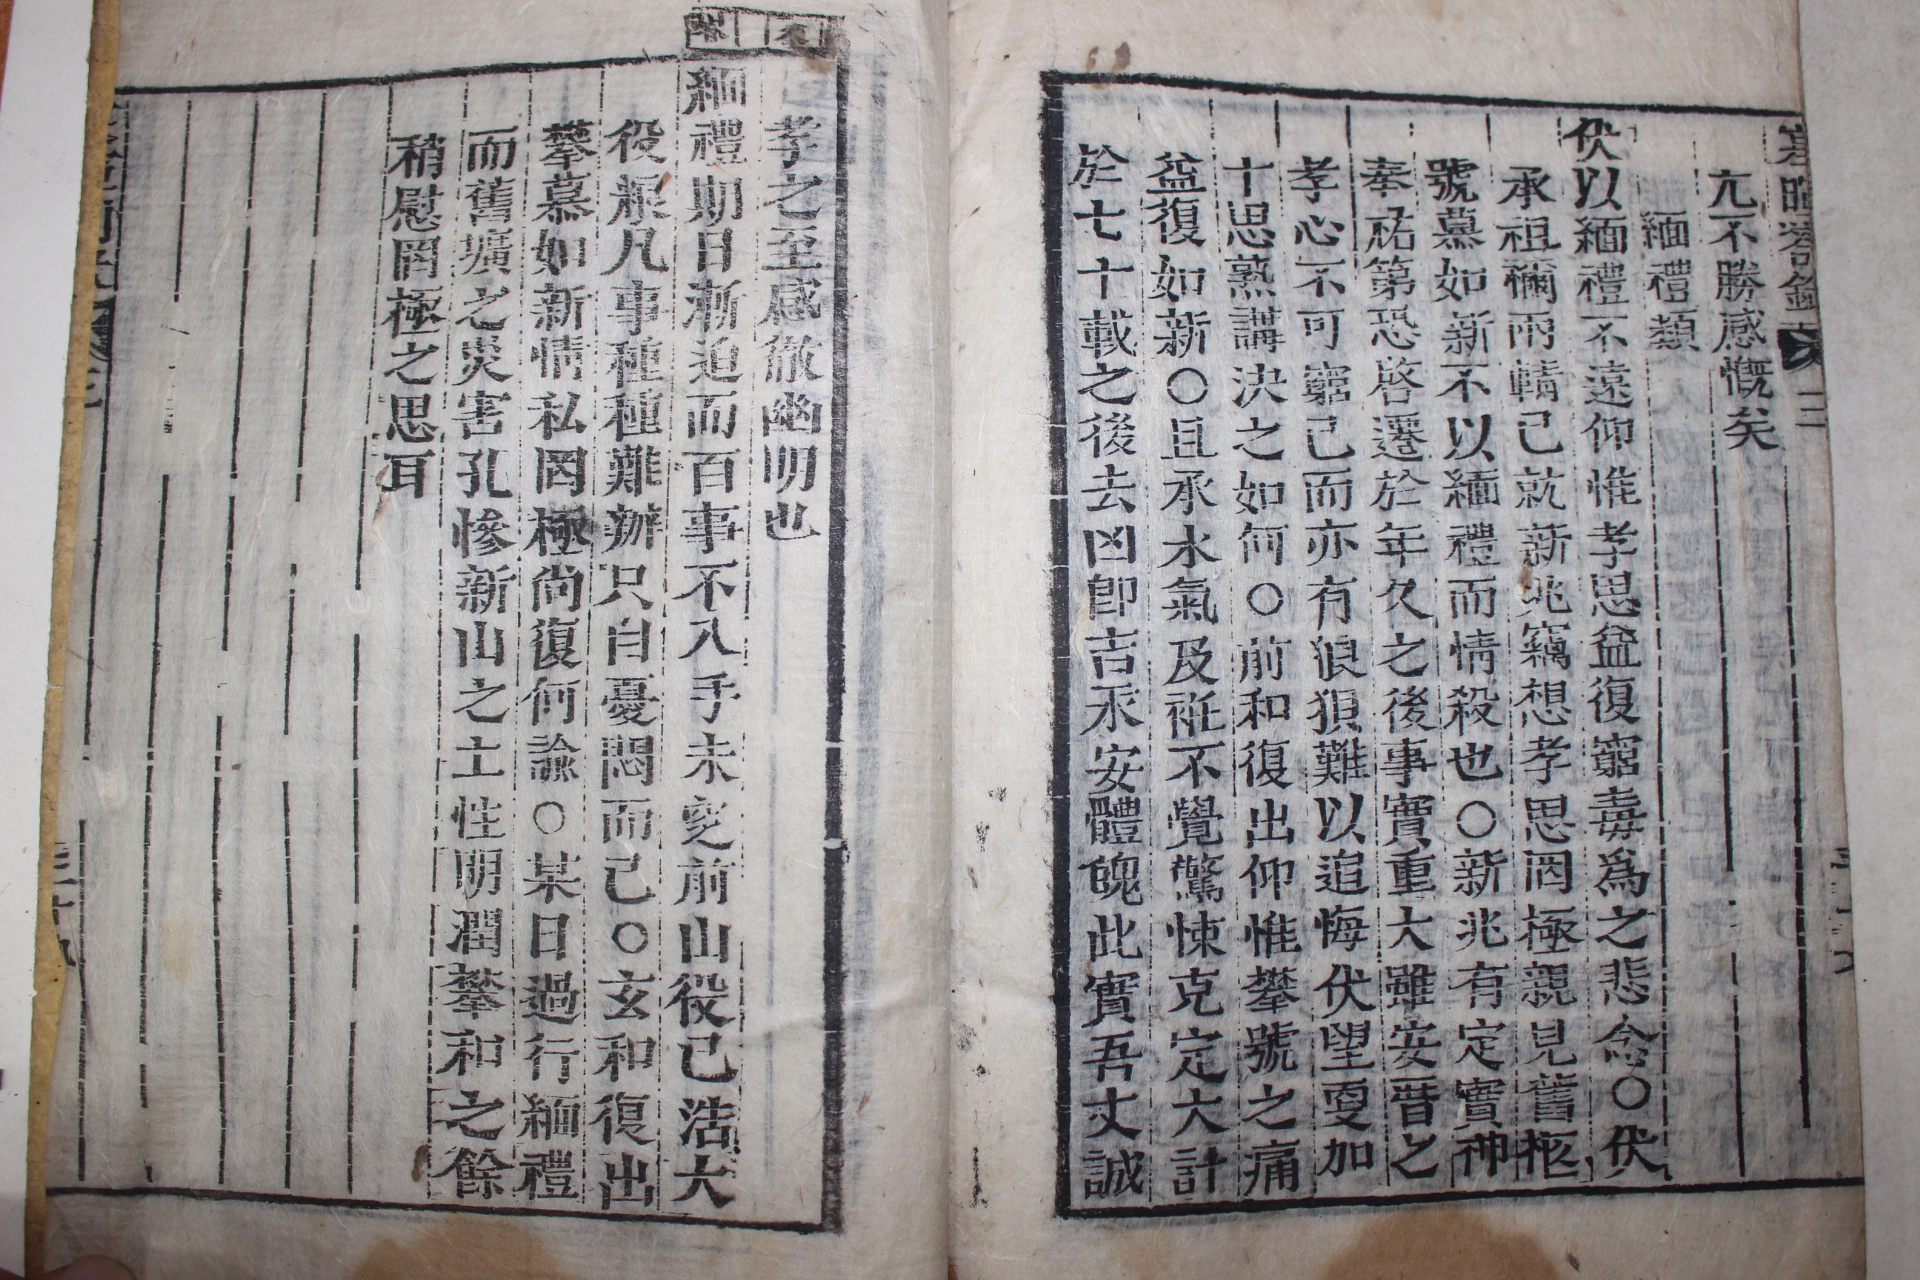 寒暄箚錄
亢不勝感慨矣
緬禮類
伏以緬禮不遠仰惟孝思益復窮毒爲之悲念○伏
承祖禰兩輤已就新兆竊想孝思罔極親見舊柩
號慕如新不以緬禮而情殺也○新兆有定實神
奉祐第恐啓遷於年久之後事實重大雖安厝之
孝心不可窮已而亦有狼狽難以追悔伏望更加
十思熟講決之如何○前和復出仰惟攀號之痛
益復如新○且承水氣及袵不覺驚悚克定大計
於七十載之後去凶卽吉永安體魄此實吾丈誠
孝之至感徹幽明也
緬禮期日漸迫而百事不入手未窆前山役已浩大
役糧凡事種種難辦只自憂悶而已○玄和復出
攀慕如新情私罔極尙復何諭○某日過行緬禮
而舊壙之災害孔慘新山之土性明潤攀和之餘
稍慰罔極之思耳